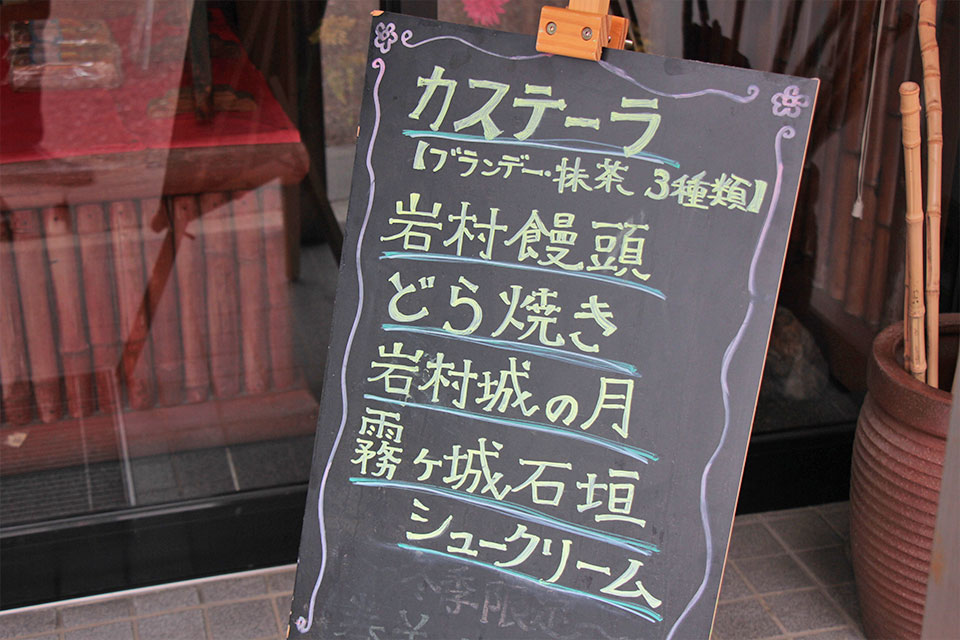 カステーラ
【ブランデー・抹茶 3種類】
岩村饅頭
どら焼き
岩村城の月
霧ヶ城石垣
シュークリーム